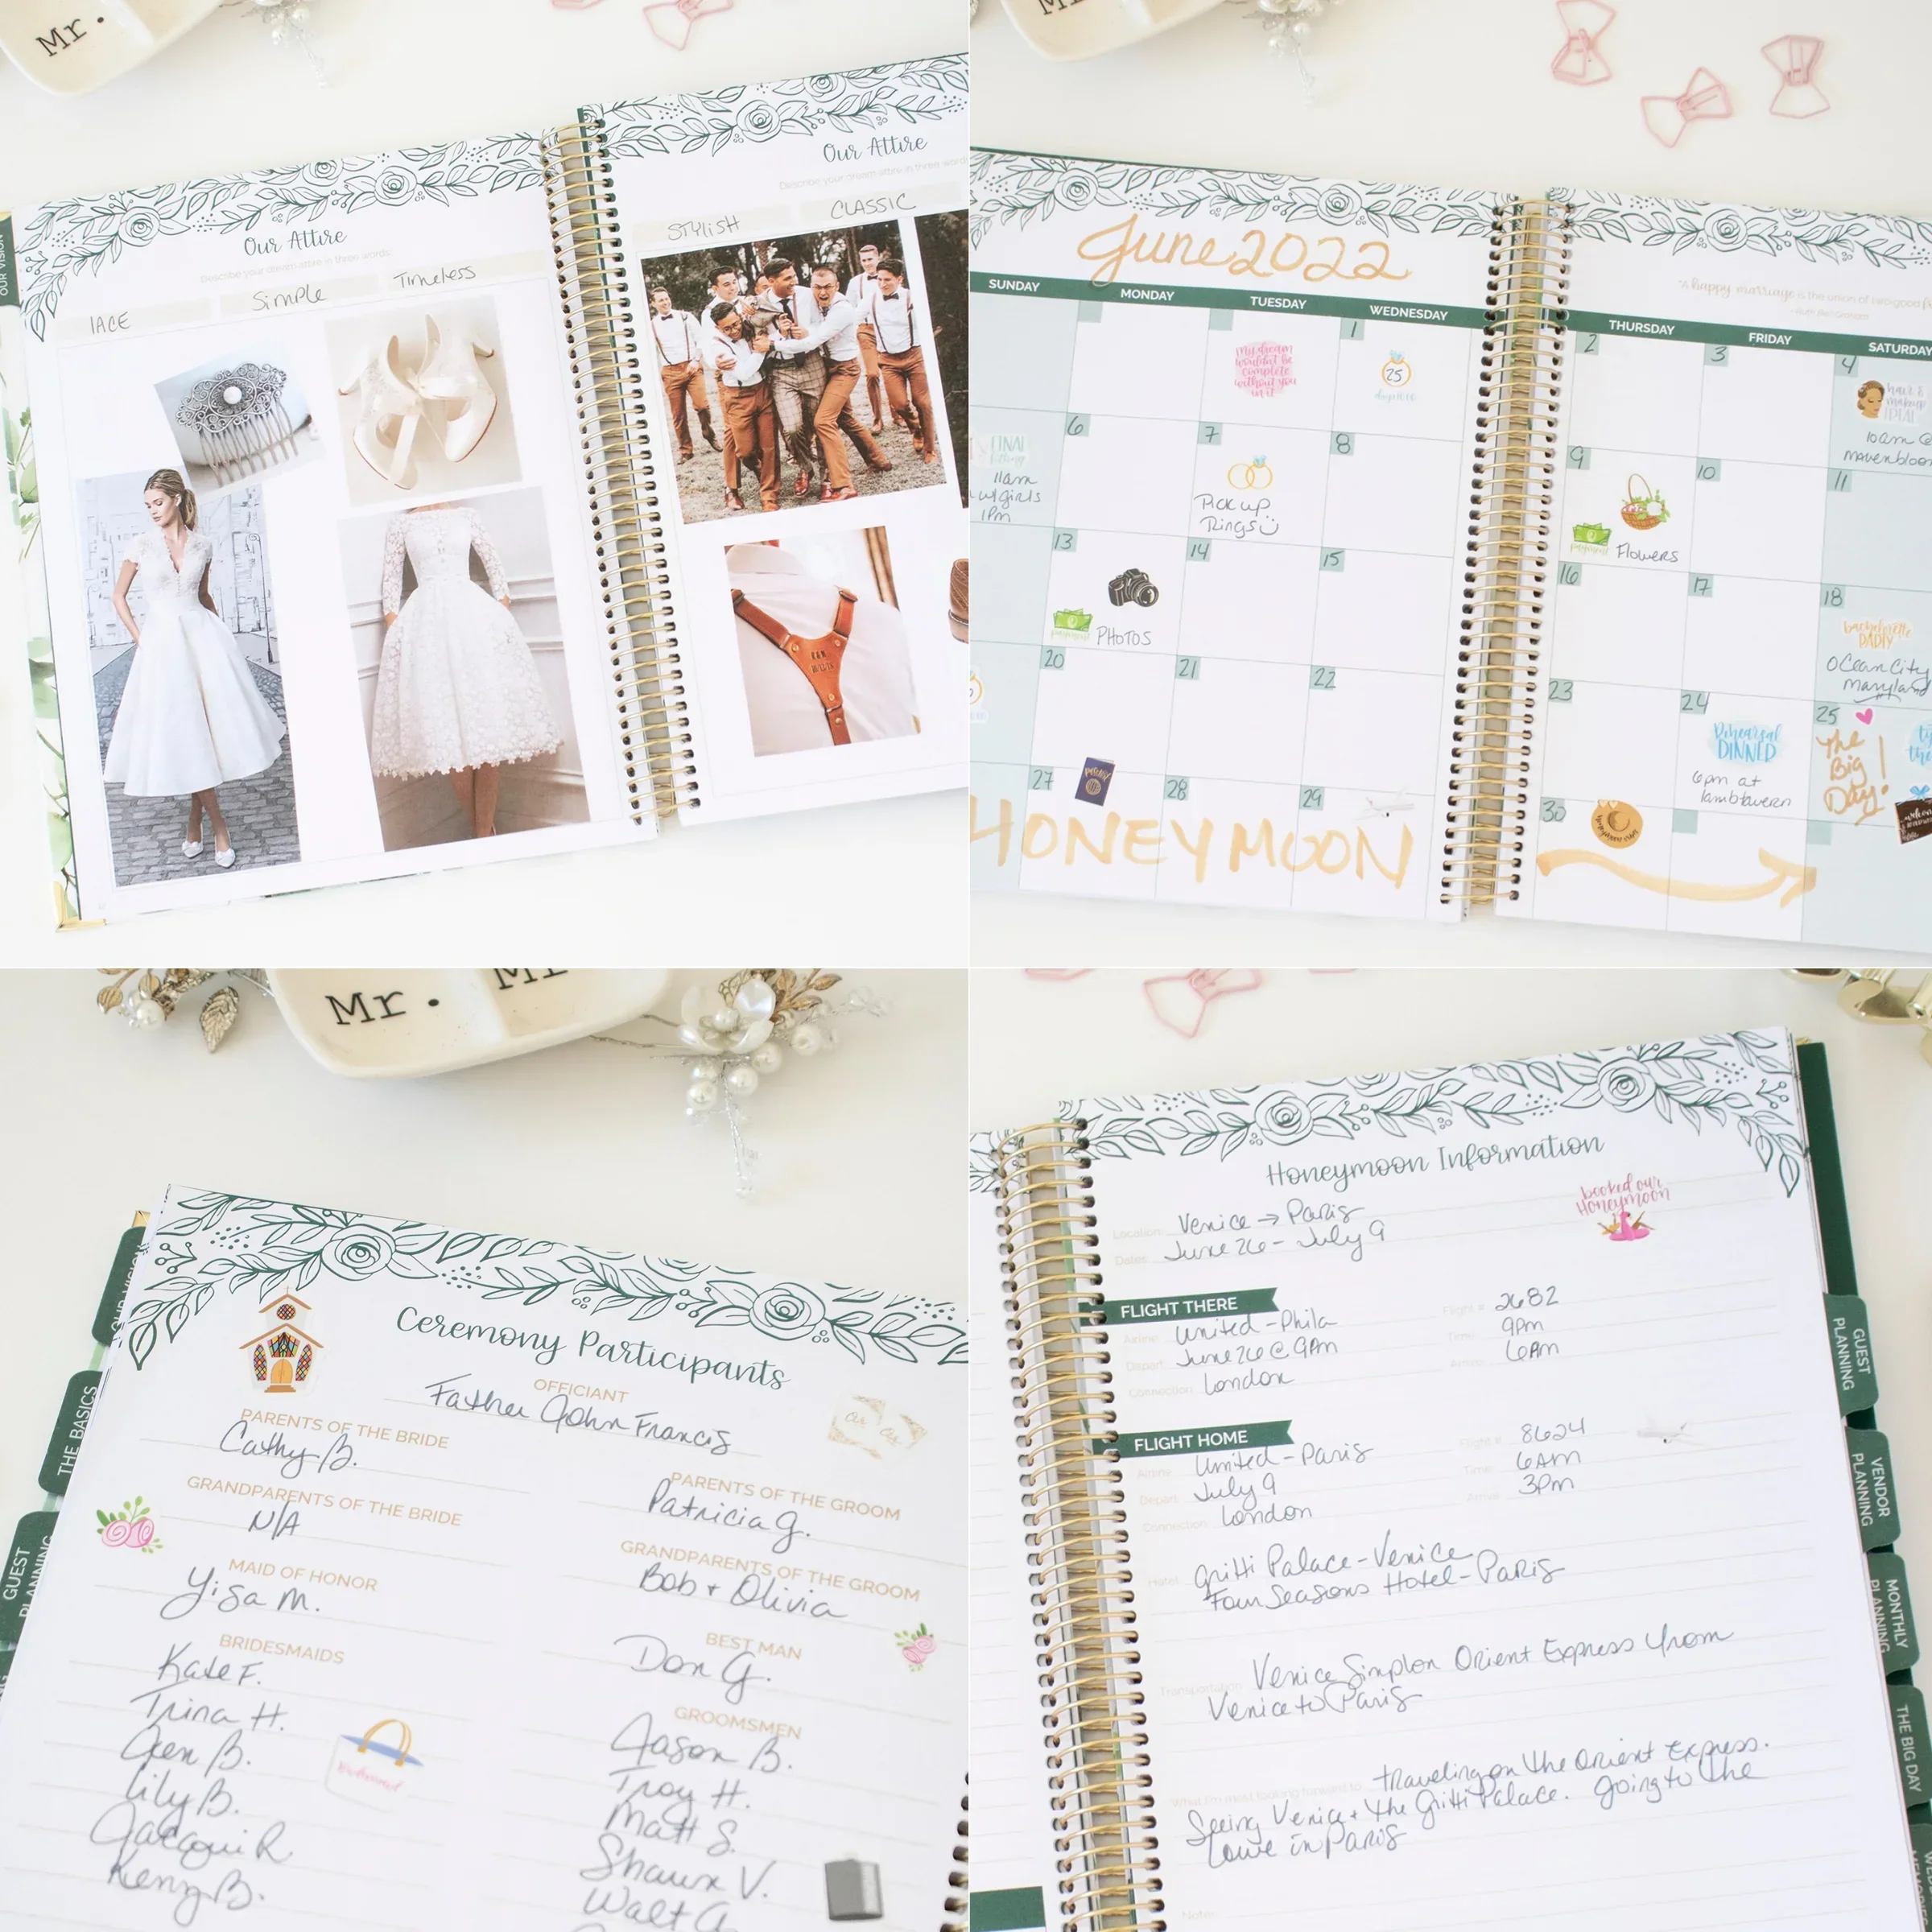 Mr.
OUR VISION
Our Attire
Describe your dream attire in three words
lACE
Simple
Timeless
Our Attire
Describe your dream attire in three words
STYLISH
CLASSIC
Mr.
June 2022
"A happy marriage is the union of two good
SUNDAY
MONDAY
TUESDAY
WEDNESDAY
THURSDAY
FRIDAY
SATURDAY
My dream
wouldn't be
complete
without you
in it
1
25
days to go
2
3
4
hair &
makeup
10am @
FINAL
11am
w/ girls
1pm
6
7
Pick up
Rings
8
9
payment
Flowers
10
11
13
payment
PHOTOS
14
15
16
17
18
bachelorette
PARTY
Ocean City
Maryland
20
21
22
23
24
Rehearsal
DINNER
6pm at
25
The
Big
Day!
27
28
29
30
HONEYMOON
Mr.
OUR VISION
THE BASICS
GUEST
PLANNING
Ceremony Participants
OFFICIANT
Father John Francis
PARENTS OF THE BRIDE
Cathy B.
PARENTS OF THE GROOM
Patricia G.
GRANDPARENTS OF THE BRIDE
N/A
GRANDPARENTS OF THE GROOM
Bob + Olivia
MAID OF HONOR
BEST MAN
Don G.
BRIDESMAIDS
Kate F.
Trina H.
Jen B.
Lily B.
Jacqui R.
GROOMSMEN
Jason B.
Troy H.
Matt S.
Shawn V.
Walt
Honeymoon Information
booked our
Honeymoon
Location: Venice → Paris
Dates: June 26 - July 9
FLIGHT THERE
Airline: United - Phila
Flight #: 2682
Depart: June 26 @ 9pm
Time: 9pm
Connection: London
Arrive: 6Am
FLIGHT HOME
Airline: United - Paris
Flight #: 8624
Depart: July 9
Time: 6Am
Connection: London
Arrive: 3pm
Hotel: Gritti Palace - Venice
Four Seasons Hotel - Paris
Transportation: Venice Simplon Orient Express from
Venice to Paris
What I'm most looking forward to: traveling on the Orient Express.
Seeing Venice + the Gritti Palace. Going to the
Louve in Paris
Note:
GUEST
PLANNING
VENDOR
PLANNING
MONTHLY
PLANNING
THE BIG DAY